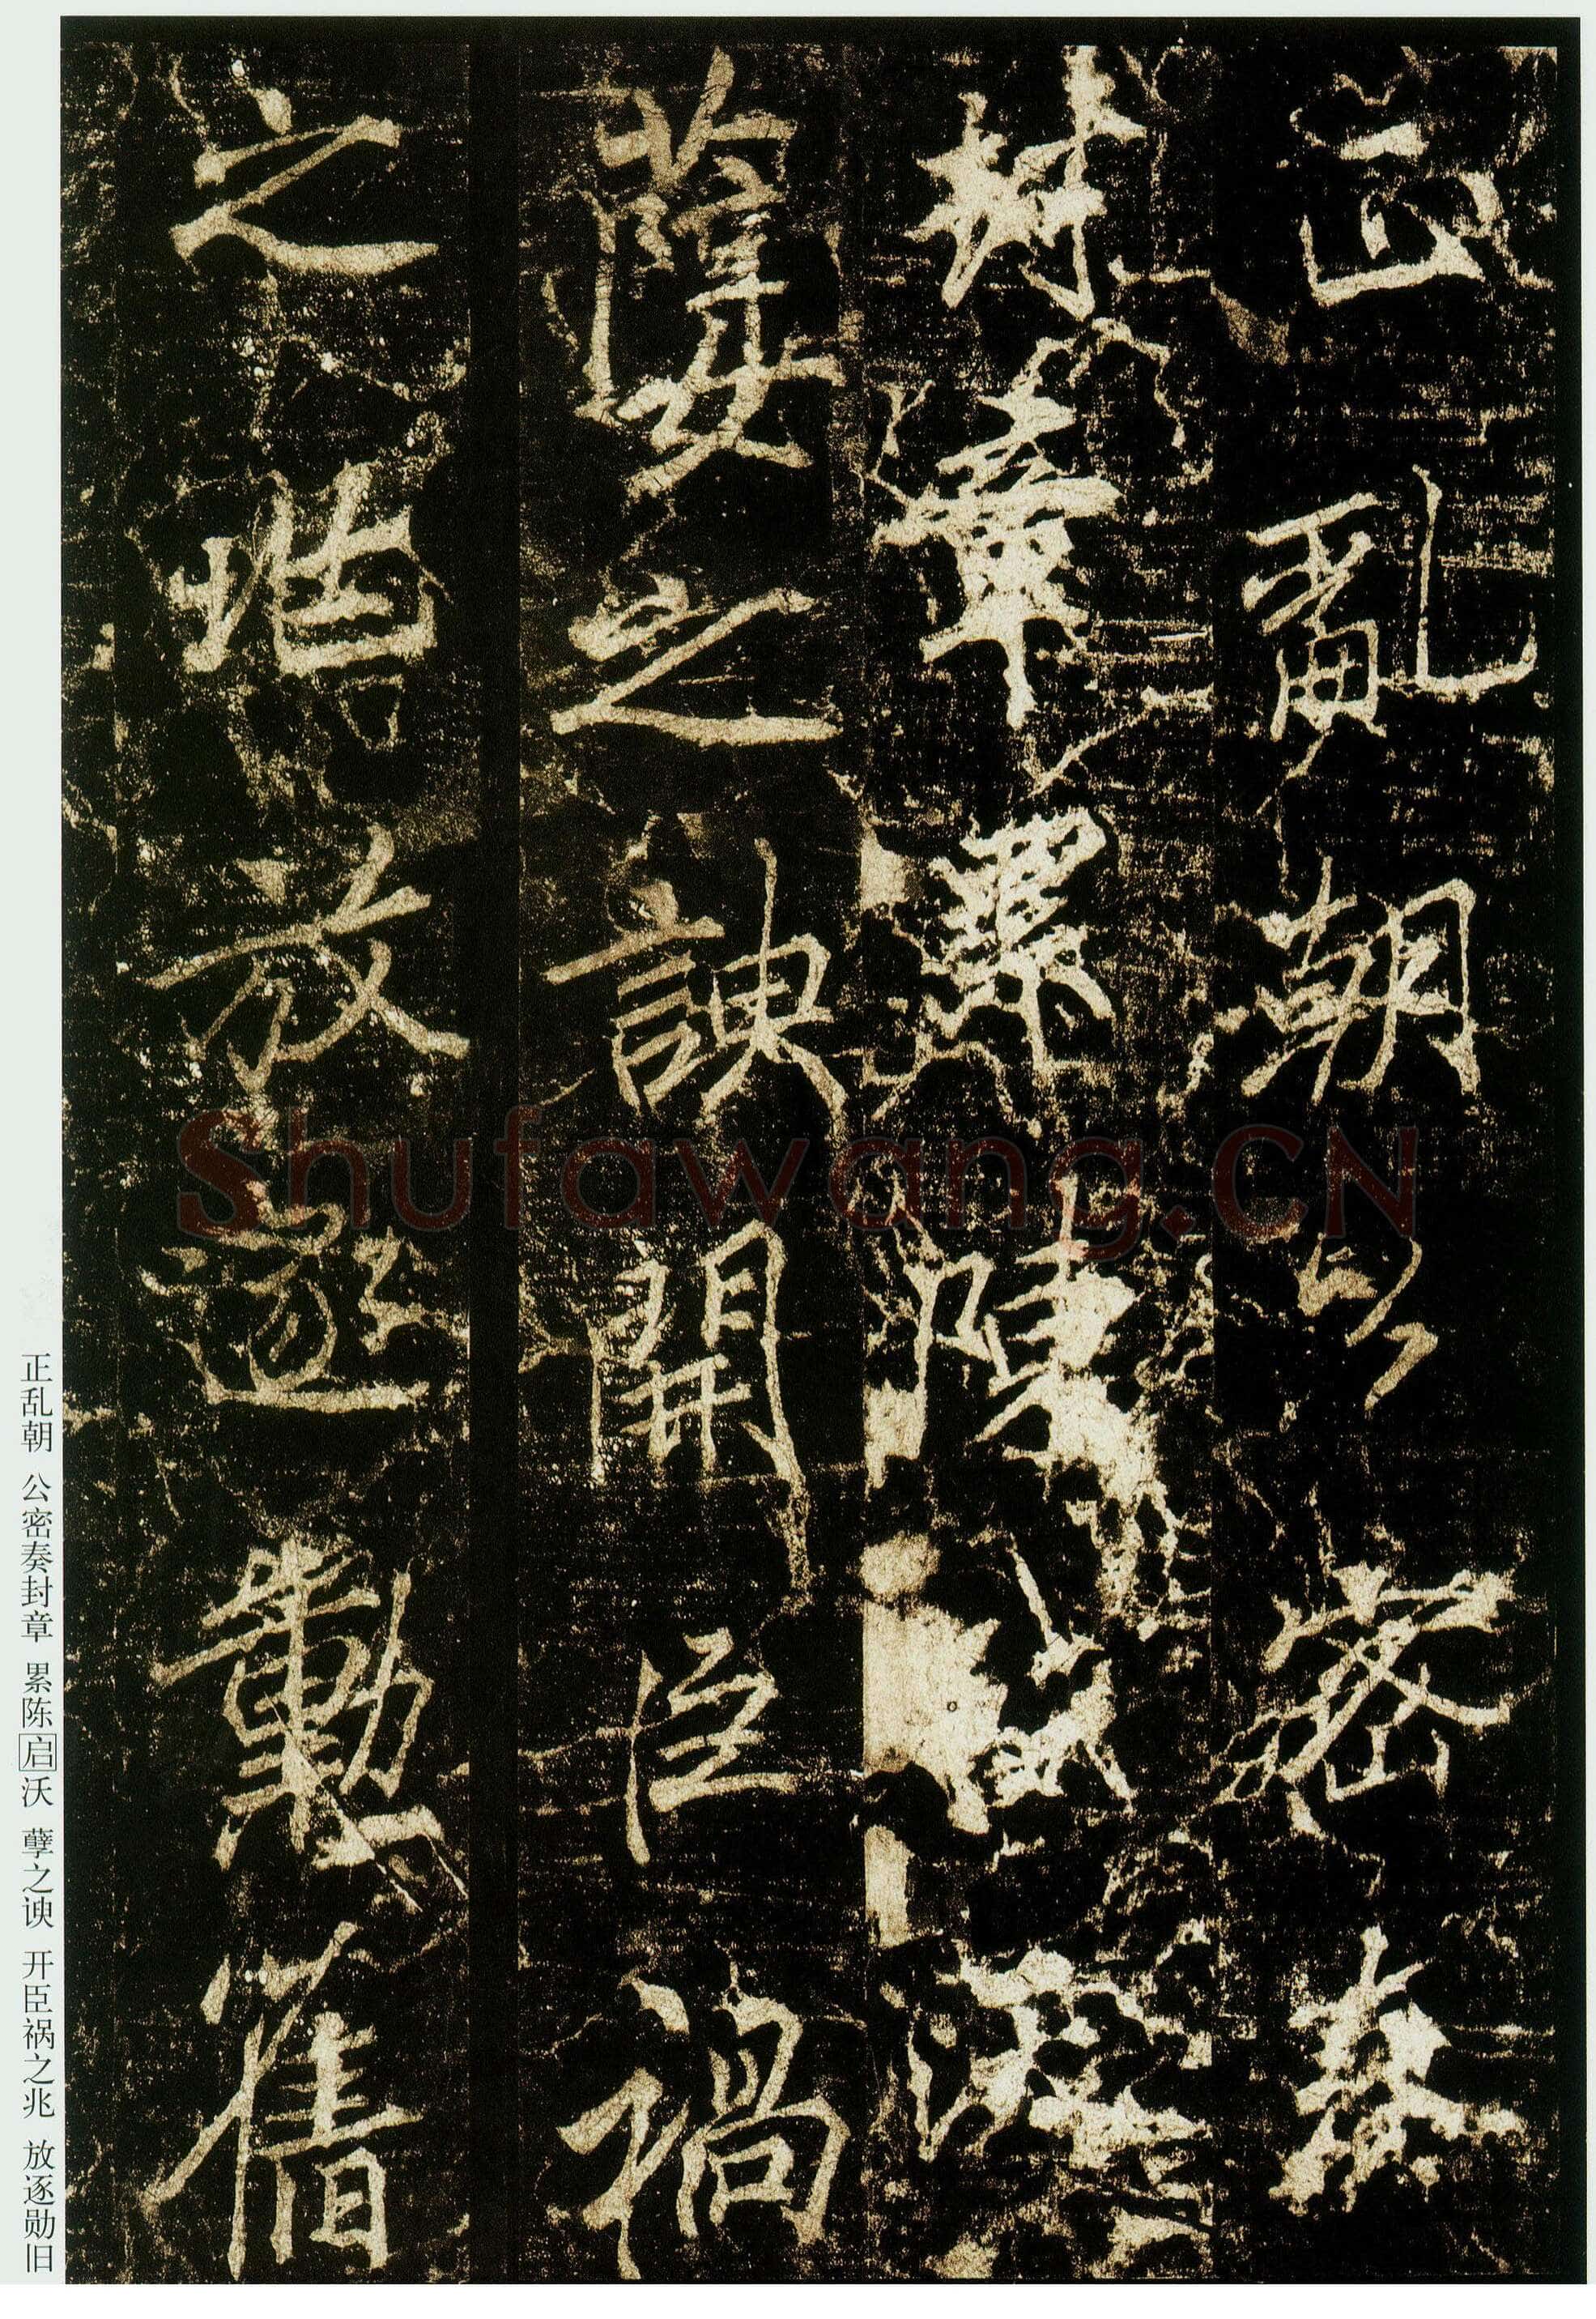 正亂朝公密奏
封章累陳啓沃
孽之諛開臣禍
之堦放逐勳舊
正乱朝 公密奏封章 累陈启沃 孽之谀 开臣祸之兆 放逐勋旧
Shufawang.CN